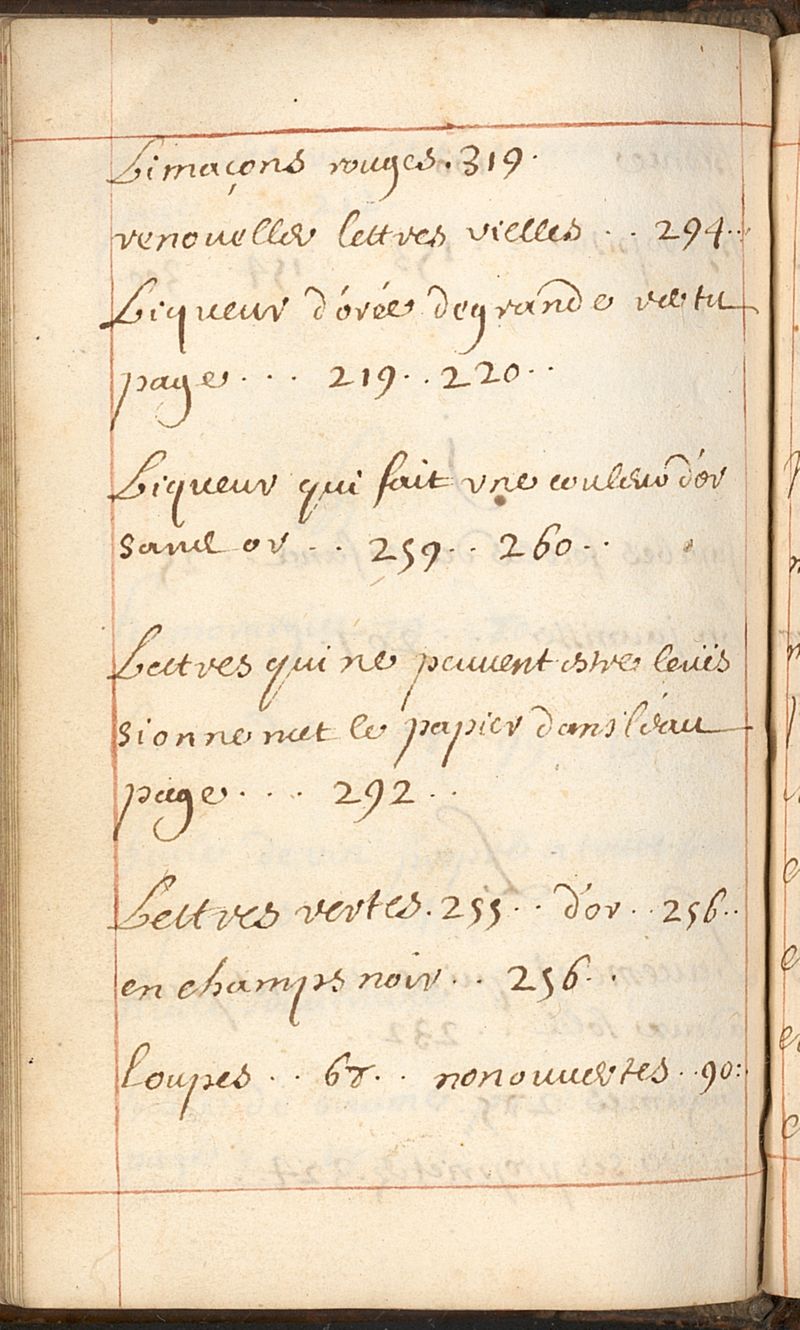 Limaçons rouges. 319.
renoueller lettres vielles . . 294..
Liqueur d'orée degrande vertu
page . . . 219. . 220 . .
Liqueur qui fait vne couleur d'or
sans or . . 259 . . 260 . .
Lettres qui ne peuuent estre leües
sionne met le papier dans l'éau
page . . . 292 . .
Lettres vertes. 255 . . d'or . . 256..
en champs noir . . 256 . .
loupes . . 68 . . nonouuertes . . 90: